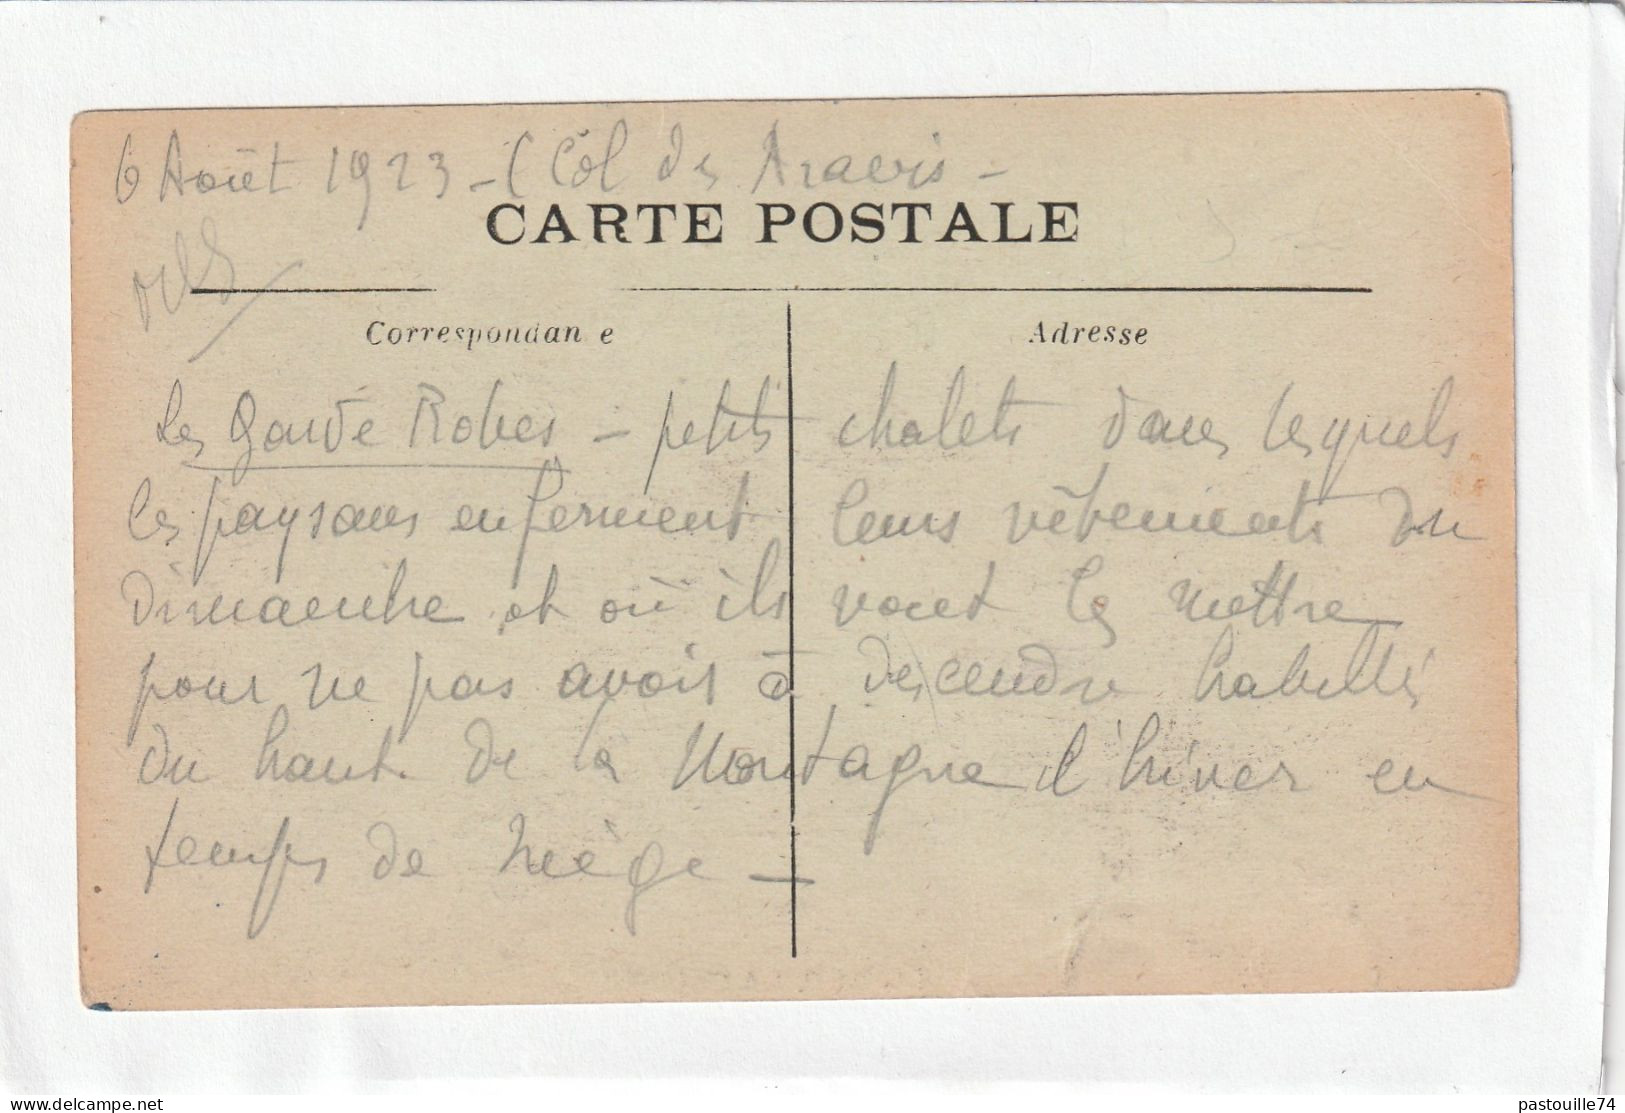 6 Août 1923 - (Col des Aravis -
CARTE POSTALE
Correspondan e
Adresse
Les Garde Robes - petits chalets dans lesquels
les paysans enferment leurs vêtements du
dimanche et où ils vont les mettre
pour ne pas avoir à descendre habillés
du haut de la Montagne l'hiver en
temps de Neige -
pastouille74